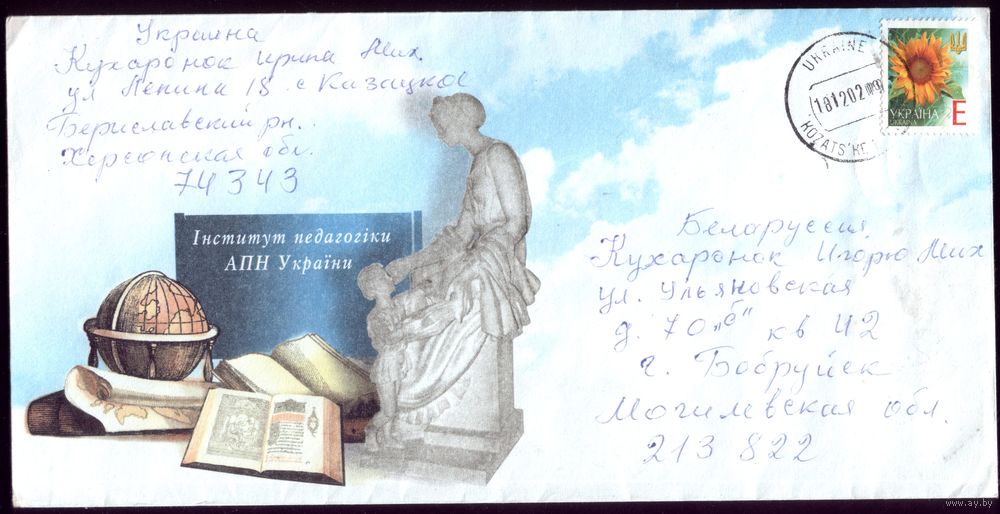 Украина
Кухаронок Ирина Мих.
ул Ленина 18 с Казацкое
Бериславский рн.
Херсонская обл.
74343
UKRAINE
181202
KOZATS'KE
УКРАЇНА
UKRAINA
E
Інститут педагогіки
АПН України
Белоруссия
Кухаронок Игорю Мих
ул. Ульяновская
д. 70 „б" кв 42
г. Бобруйск
Могилевская обл.
213 822
www.ay.by